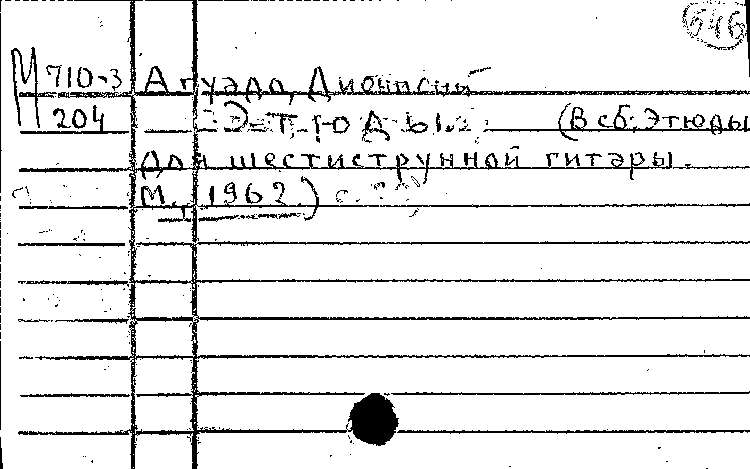 646
М 710-3 Агуадо, Дионисий
204 Этюды. (В сб: Этюды
для шестиструнной гитары.
М., 1962.) с.